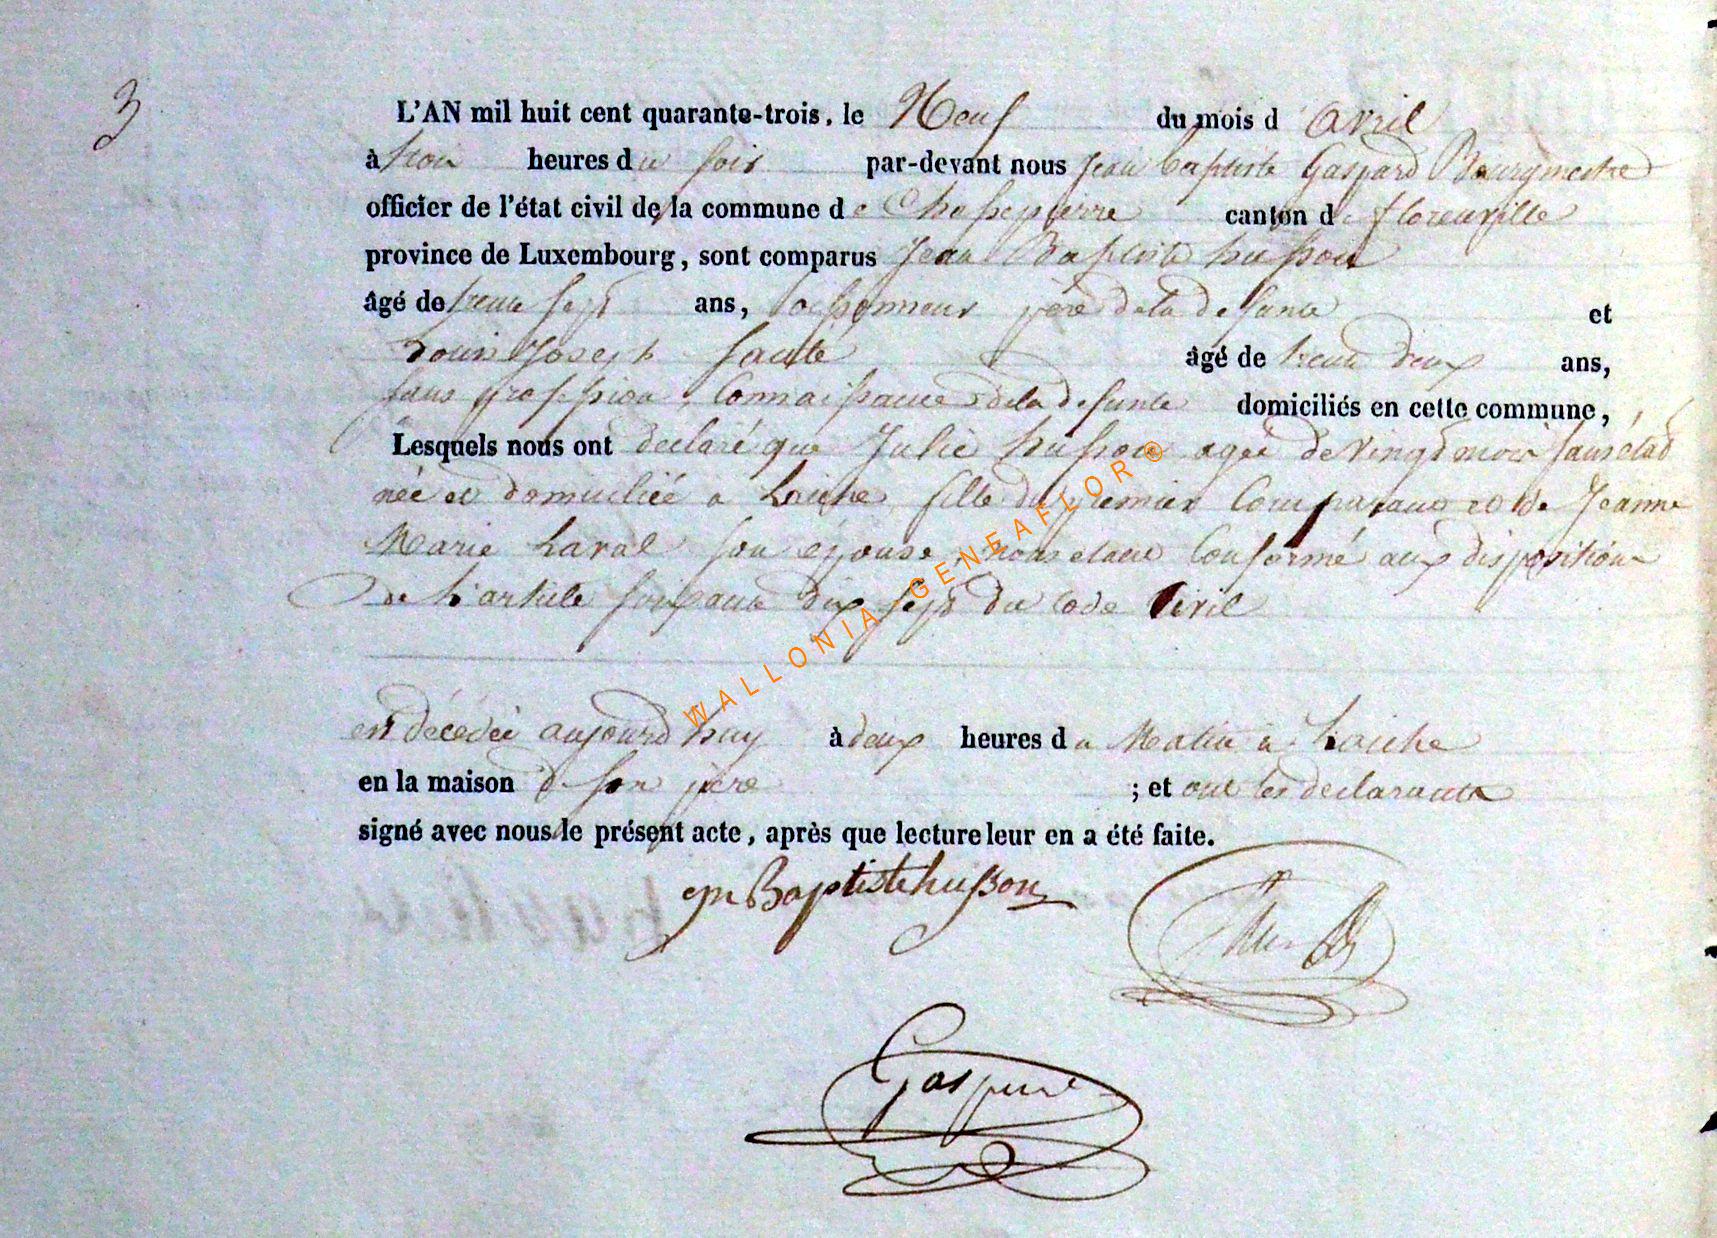 3
L'AN mil huit cent quarante-trois, le Neuf du mois d'avril
à trois heures du soir par-devant nous Jean baptiste Gaspard Bourgmestre
officier de l'état civil de la commune de Chassepierre canton de florenville
province de Luxembourg, sont comparus Jean Baptiste husson
âgé de trente sept ans, père de la defunte et
Joseph âgé de trente deux ans,
sans profession, Connaissance de la defunte domiciliés en cette commune,
Lesquels nous ont declaré que Julie husson agée de vingt mois sans état
née et domiciliée a Laiche, fille du premier Comparant et de Jeanne
Marie Laval son épouse, nous etant Conformé aux disposition
de L'article soixante dix sept du Code Civil
est décédée aujourd'huy à deux heures du Matin à Laiche
en la maison de son père ; et ont les declarants
signé avec nous le présent acte, après que lecture leur en a été faite.
jn Baptiste husson
Gaspard
WALLONIA GENEAFLOR ®